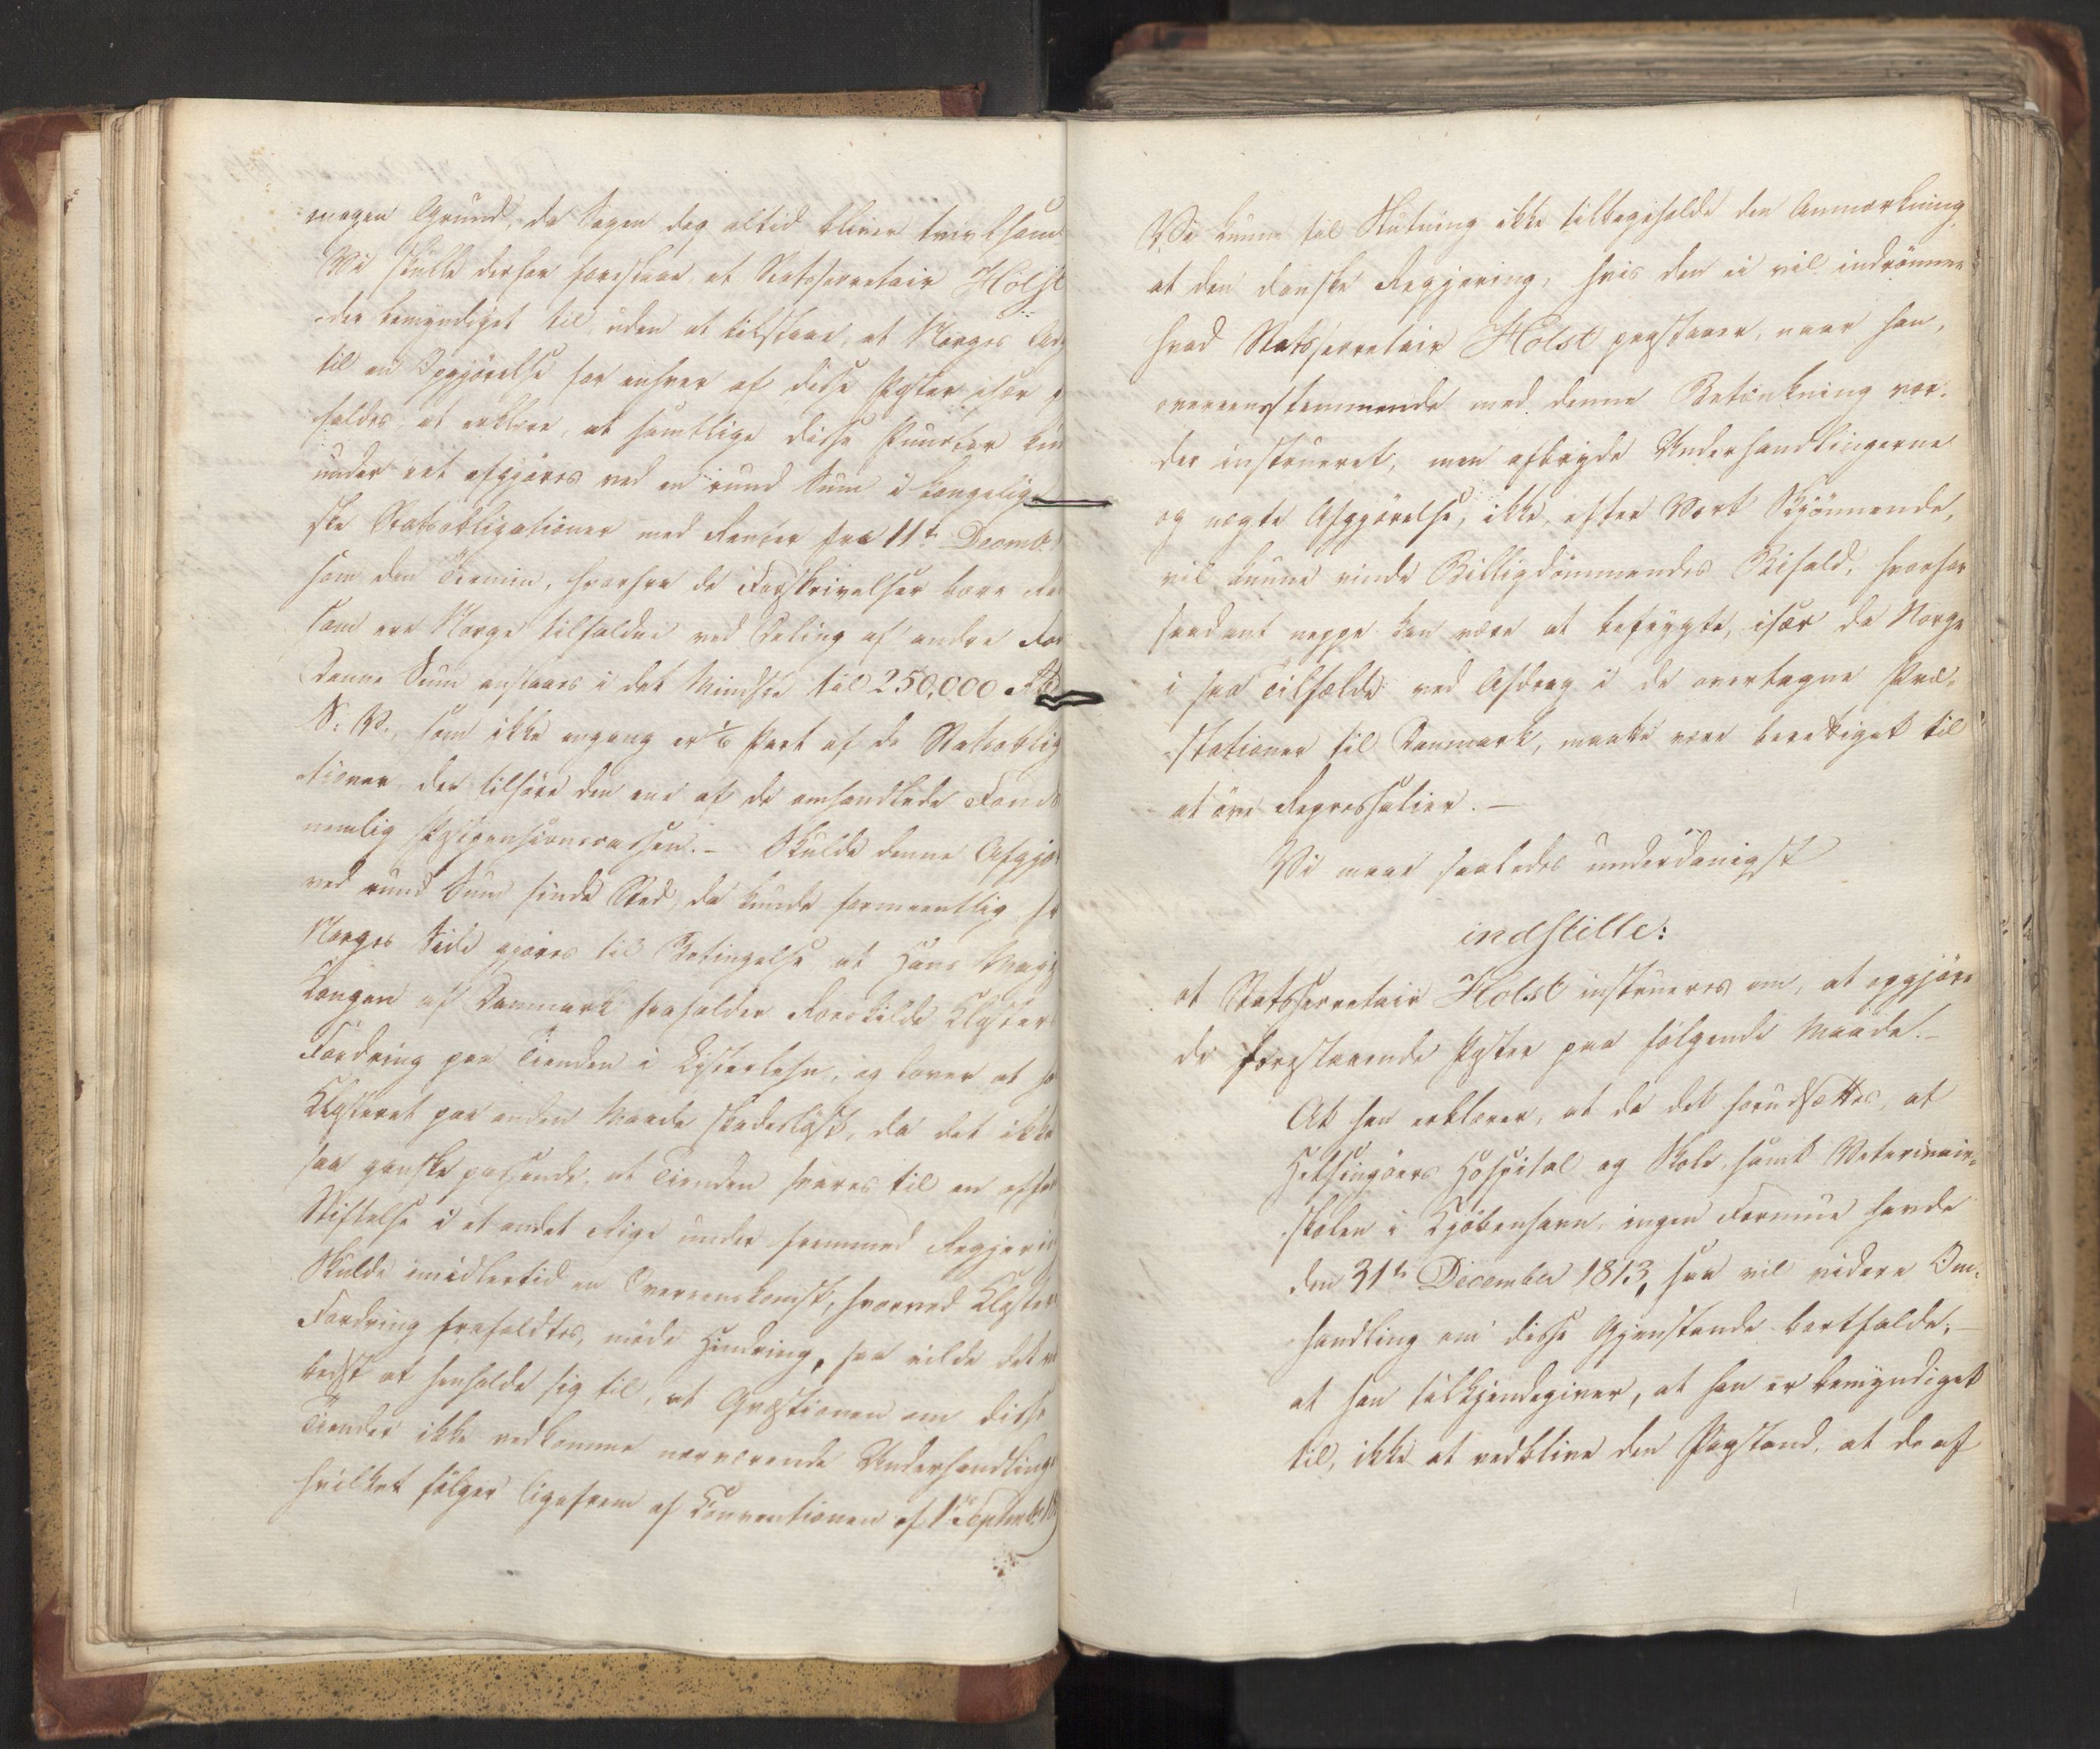 megen Grund, da Sagen dog altid bliver tvivlsom
Vi skulle derfor foreslaae, at Statssecretair Holst
der bemyndiget til, uden at tilstaae, at Norges Adg
til en Opgjörelse for enhver af disse Poster især
faldes, at erklære, at samtlige disse Puncter kun
under eet afgjöres ved en rund Sum i kongelig
ske Statsobligationer med Renter fra 11te Decemb.
som den Termin, hvorfra de Forskrivelser bære Re
som ere Norge tilfaldne ved Deling af andre Fon
Denne Sum ansaaes i det Mindste til 250,000 Rbd
S. V., som ikke engang er 1/6 Part af de Statsoblig
tioner, der tilhöre den ene af de omhandlede Fonds
nemlig Postpensionscassen. – Skulde denne Afgjö
ved rund Sum finde Sted, da kunde formeentlig fr
Norges Side gjöres til Betingelse at Hans Maj
Kongen af Danmark frafalder Roeskilde Kloster
Fordring paa Tienden i Listerlehn, og lover at h
Klosteret paa anden Maade skadeslöst, da det ikke
saa ganske passende, at Tienden svares til en offe
Stiftelse i et andet Rige under fremmed Regjering
Skulde imidlertid en Overeenskomst, hvorved Kloster
Fordring frafaldtes, möde Hindring, saa vilde det v
bedst at henholde sig til, at Qvæstionen om disse
Tiender ikke vedkomme nærværende Underhandling
hvilket fölger ligefrem af Conventionen af 1ste Septembr. 18
Vi kunne til Slutning ikke tilbageholde den Anmærkning,
at den danske Regjering, hvis den ei vil indrömme
hvad Statssecretair Holst paastaaer, naar han,
overeensstemmende med denne Betænkning vor-
der instrueret, men afbryde Underhandlingerne
og nægte Afgjörelse, ikke, efter Vort Skjönnende,
vil kunne vinde Billigdömmendes Bifald, hvorfor
saadant neppe kan være at befrygte, især da Norge
i saa Tilfælde ved Afdrag i de overtagne Præ-
stationer til Danmark, maatte være berettiget til
at öve Repressalier. –
Vi maae saaledes underdanigst
indstille:
at Statssecretair Holst instrueres om, at opgjöre
de foreslaaende Poster paa fölgende Maade. –
At han erklærer, at da det forudsættes, at
Helsingöers Hospital og Skole, samt Veterinair-
skolen i Kjöbenhavn, ingen Formue havde
den 31te December 1813, saa vil videre Om-
handling om disse Gjenstande bortfalde; –
at han tilkjendegiver, at han er bemyndiget
til, ikke at vedblive den Paastand, at de af